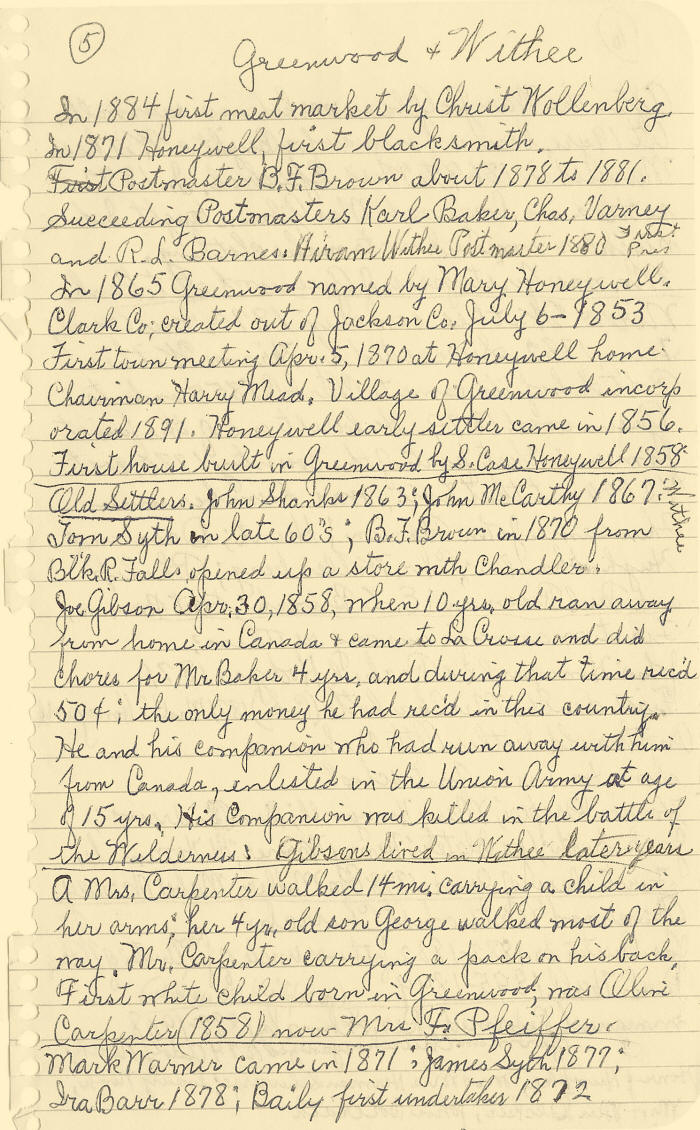 5
Greenwood & Withee
In 1884 first meat market by Christ Wollenberg.
In 1871 Honeywell, first blacksmith.
First Postmaster B.F. Brown about 1878 to 1881.
Succeeding Postmasters Karl Baker, Chas, Varney
and R.L. Barnes. Hiram Withee Postmaster 1880 First Pres
In 1865 Greenwood named by Mary Honeywell.
Clark Co; created out of Jackson Co. July 6-1853
First town meeting Apr. 5, 1870 at Honeywell home.
Chairman Harry Mead. Village of Greenwood incorp
orated 1891. Honeywell early settler came in 1856.
First house built in Greenwood by S. Case Honeywell 1858
Old Settlers. John Shanks 1863; John McCarthy 1867. Withee
Tom Syth in late 60's; B.F. Brown in 1870 from
Blk. R. Falls opened up a store with Chandler.
Joe Gibson Apr. 30, 1858, when 10 yrs. old ran away
from home in Canada & came to La Crosse and did
chores for Mr Baker 4 yrs, and during that time rec'd
50¢; the only money he had rec'd in this country.
He and his companion who had run away with him
from Canada, enlisted in the Union Army at age
of 15 yrs. His Companion was killed in the battle of
the Wilderness. Gibsons lived in Withee later years
A Mrs. Carpenter walked 14 mi. carrying a child in
her arms; her 4 yr. old son George walked most of the
way. Mr. Carpenter carrying a pack on his back.
First white child born in Greenwood, was Olive
Carpenter (1858) now Mrs F. Pfeiffer.
Mark Warner came in 1871; James Syth 1877;
Ira Barr 1878; Baily first undertaker 1872